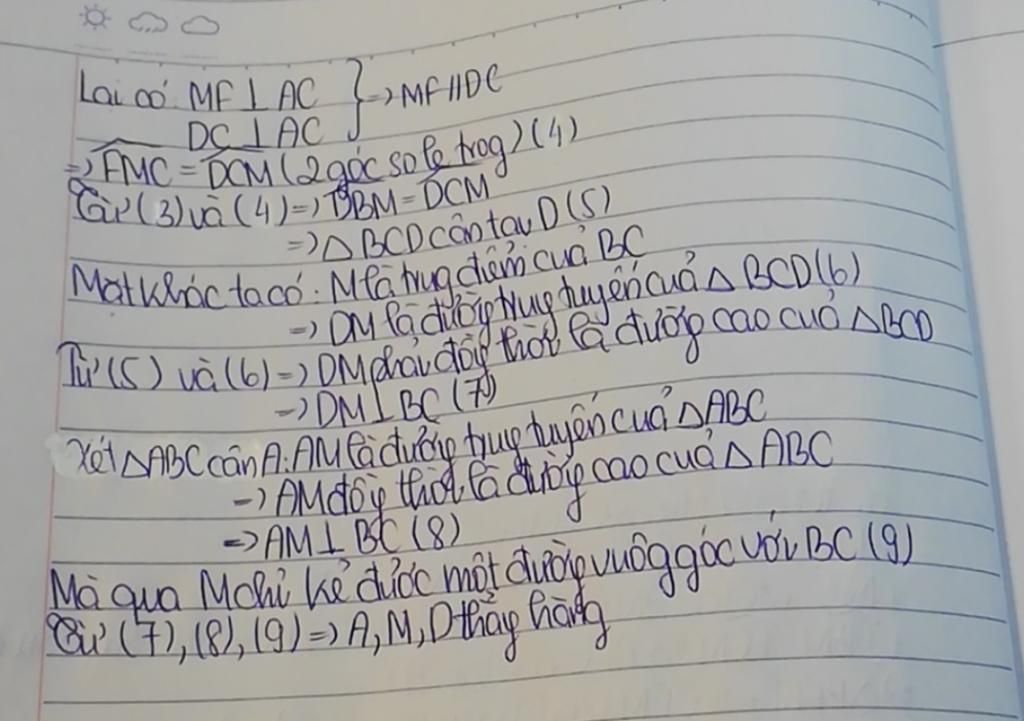 Lại có MF⊥AC } => MF//DC
DC⊥AC
=> FMC = DCM (2 góc so le trog) (4)
Từ (3) và (4) => DBM = DCM
=> △BCD cân tại D (5)
Mặt khác ta có: M là trug điểm của BC
=> DM là đườg trug tuyến của △BCD (6)
Từ (5) và (6) => DM phải đồg thời là đườg cao của △BCD
=> DM⊥BC (7)
Xét △ABC cân A: AM là đườg trug tuyến của △ABC
=> AM đồg thời là đườg cao của △ABC
=> AM⊥BC (8)
Mà qua M chỉ kẻ được một đườg vuôg góc với BC (9)
Từ (7), (8), (9) => A, M, D thẳg hàng